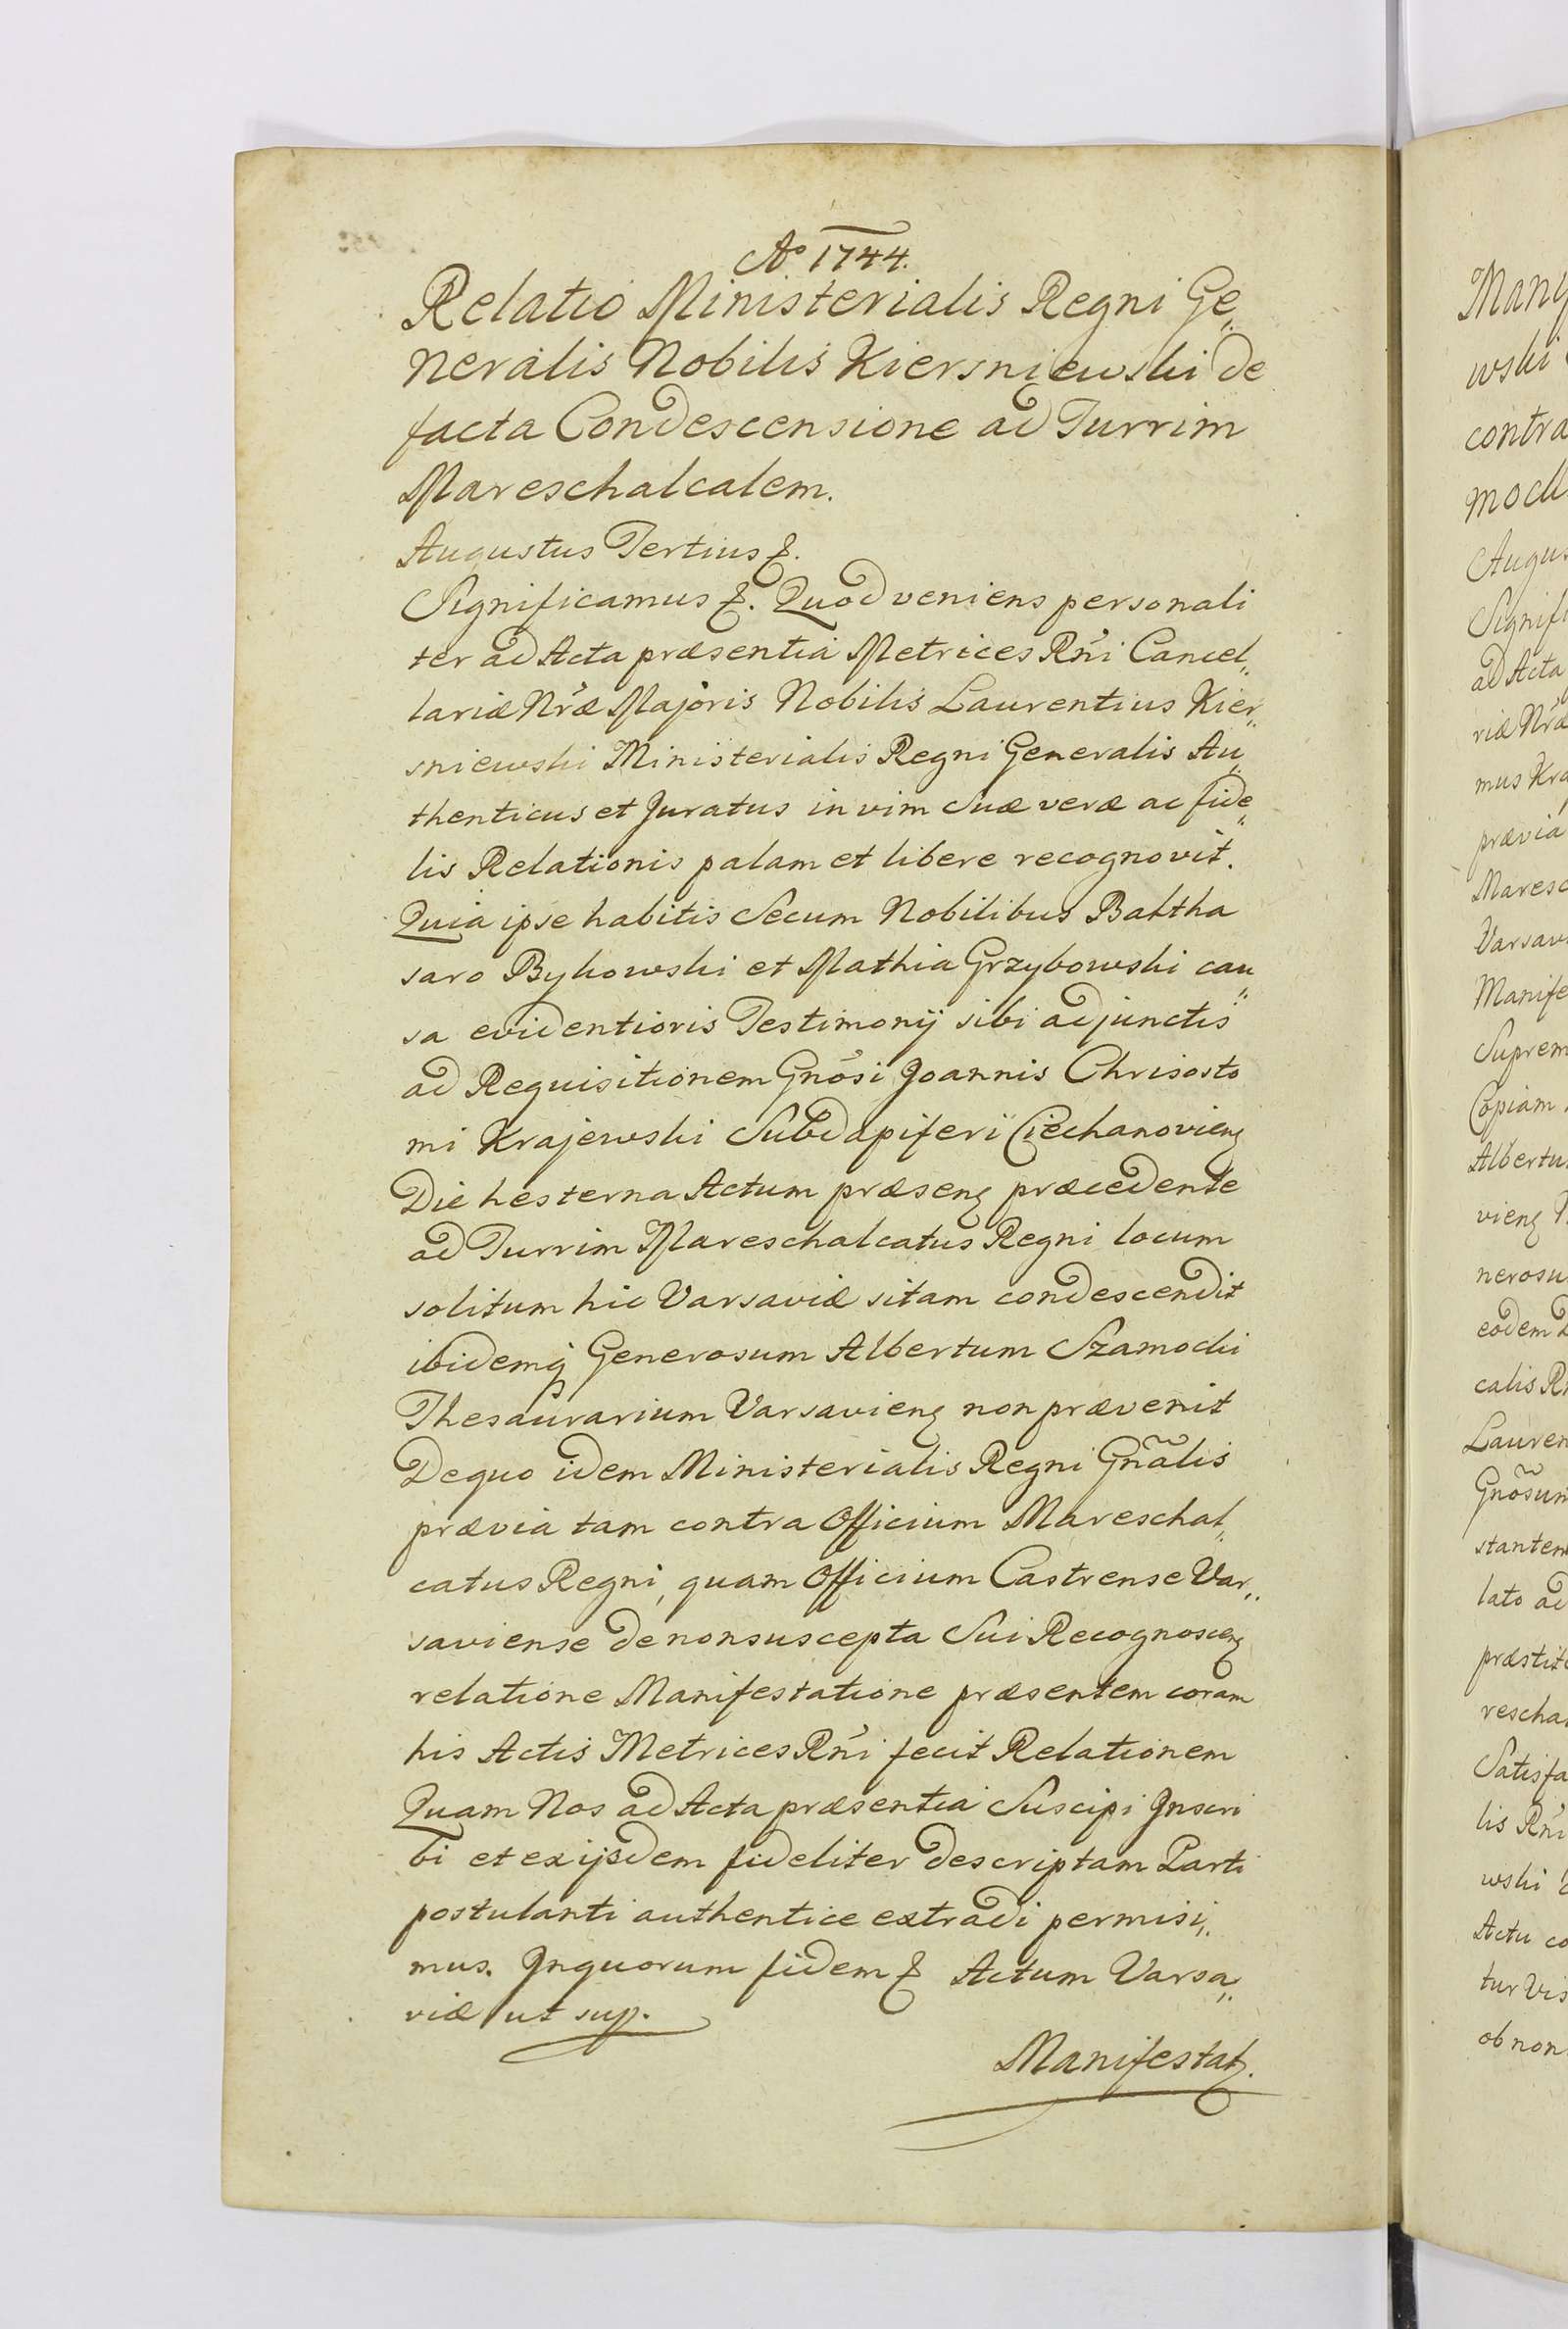 Aº 1744.
Relatio Ministerialis Regni Ge„
neralis Nobilis Kiersniewski de
facta Condescensione ad Turrim
Mareschalcalem.
Augustus Tertius &.
Significamus &. Quod veniens personali
ter ad Acta præsentia Metrices Rñi Cancel„
lariæ Nræ Majoris Nobilis Laurentius Kier„
sniewski Ministerialis Regni Generalis Au„
thenticus et Juratus in vim Suæ veræ ac fide„
lis Relationis palam et libere recognovit.
Quia ipse habitis Secum Nobilibus Baltha
saro Bykowski et Mathia Grzybowski cau„
sa evidentioris Testimonij sibi adjunctis
ad Requisitionem Gnosi Joannis Chrisosto
mi Krajewski Subdapiferi Ciechanovieng
Die hesterna Actum præseng præcedente
ad Turrim Mareschalcatus Regni locum
solitum hic Varsaviæ sitam condescendit
ibidemq Generosum Albertum Szamocki
Thesaurarium Varsavieng non prævenit
De quo idem Ministerialis Regni Gñalis
prævia tam contra Officium Mareschal„
catus Regni, quam Officium Castrense Var„
saviense de non suscepta Sui Recognosceng
relatione Manifestatione præsentem coram
his Actis Metrices Rñi fecit Relationem
Quam Nos ad Acta præsentia Suscipi Inscri
bi et ex ijsdem fideliter descriptam Parti
postulanti authentice extradi permisi„
mus. In quorum fidem & Actum Varsa„
viæ ut sup.
Manifestat.
wski
contra
Augus
Signifi
ad Acta
riæ Nræ
mus Kra
prævia
Maresc
Varsavi
Manife
Suprem
Copiam
Albertu
vieng
nerosu
eodem
calis Rñ
Lauren
Gnosum
stantem
lato ad
præstit
rescha
Satisfa
lis Rñi
wski
Actu co
tur Vis
ob non